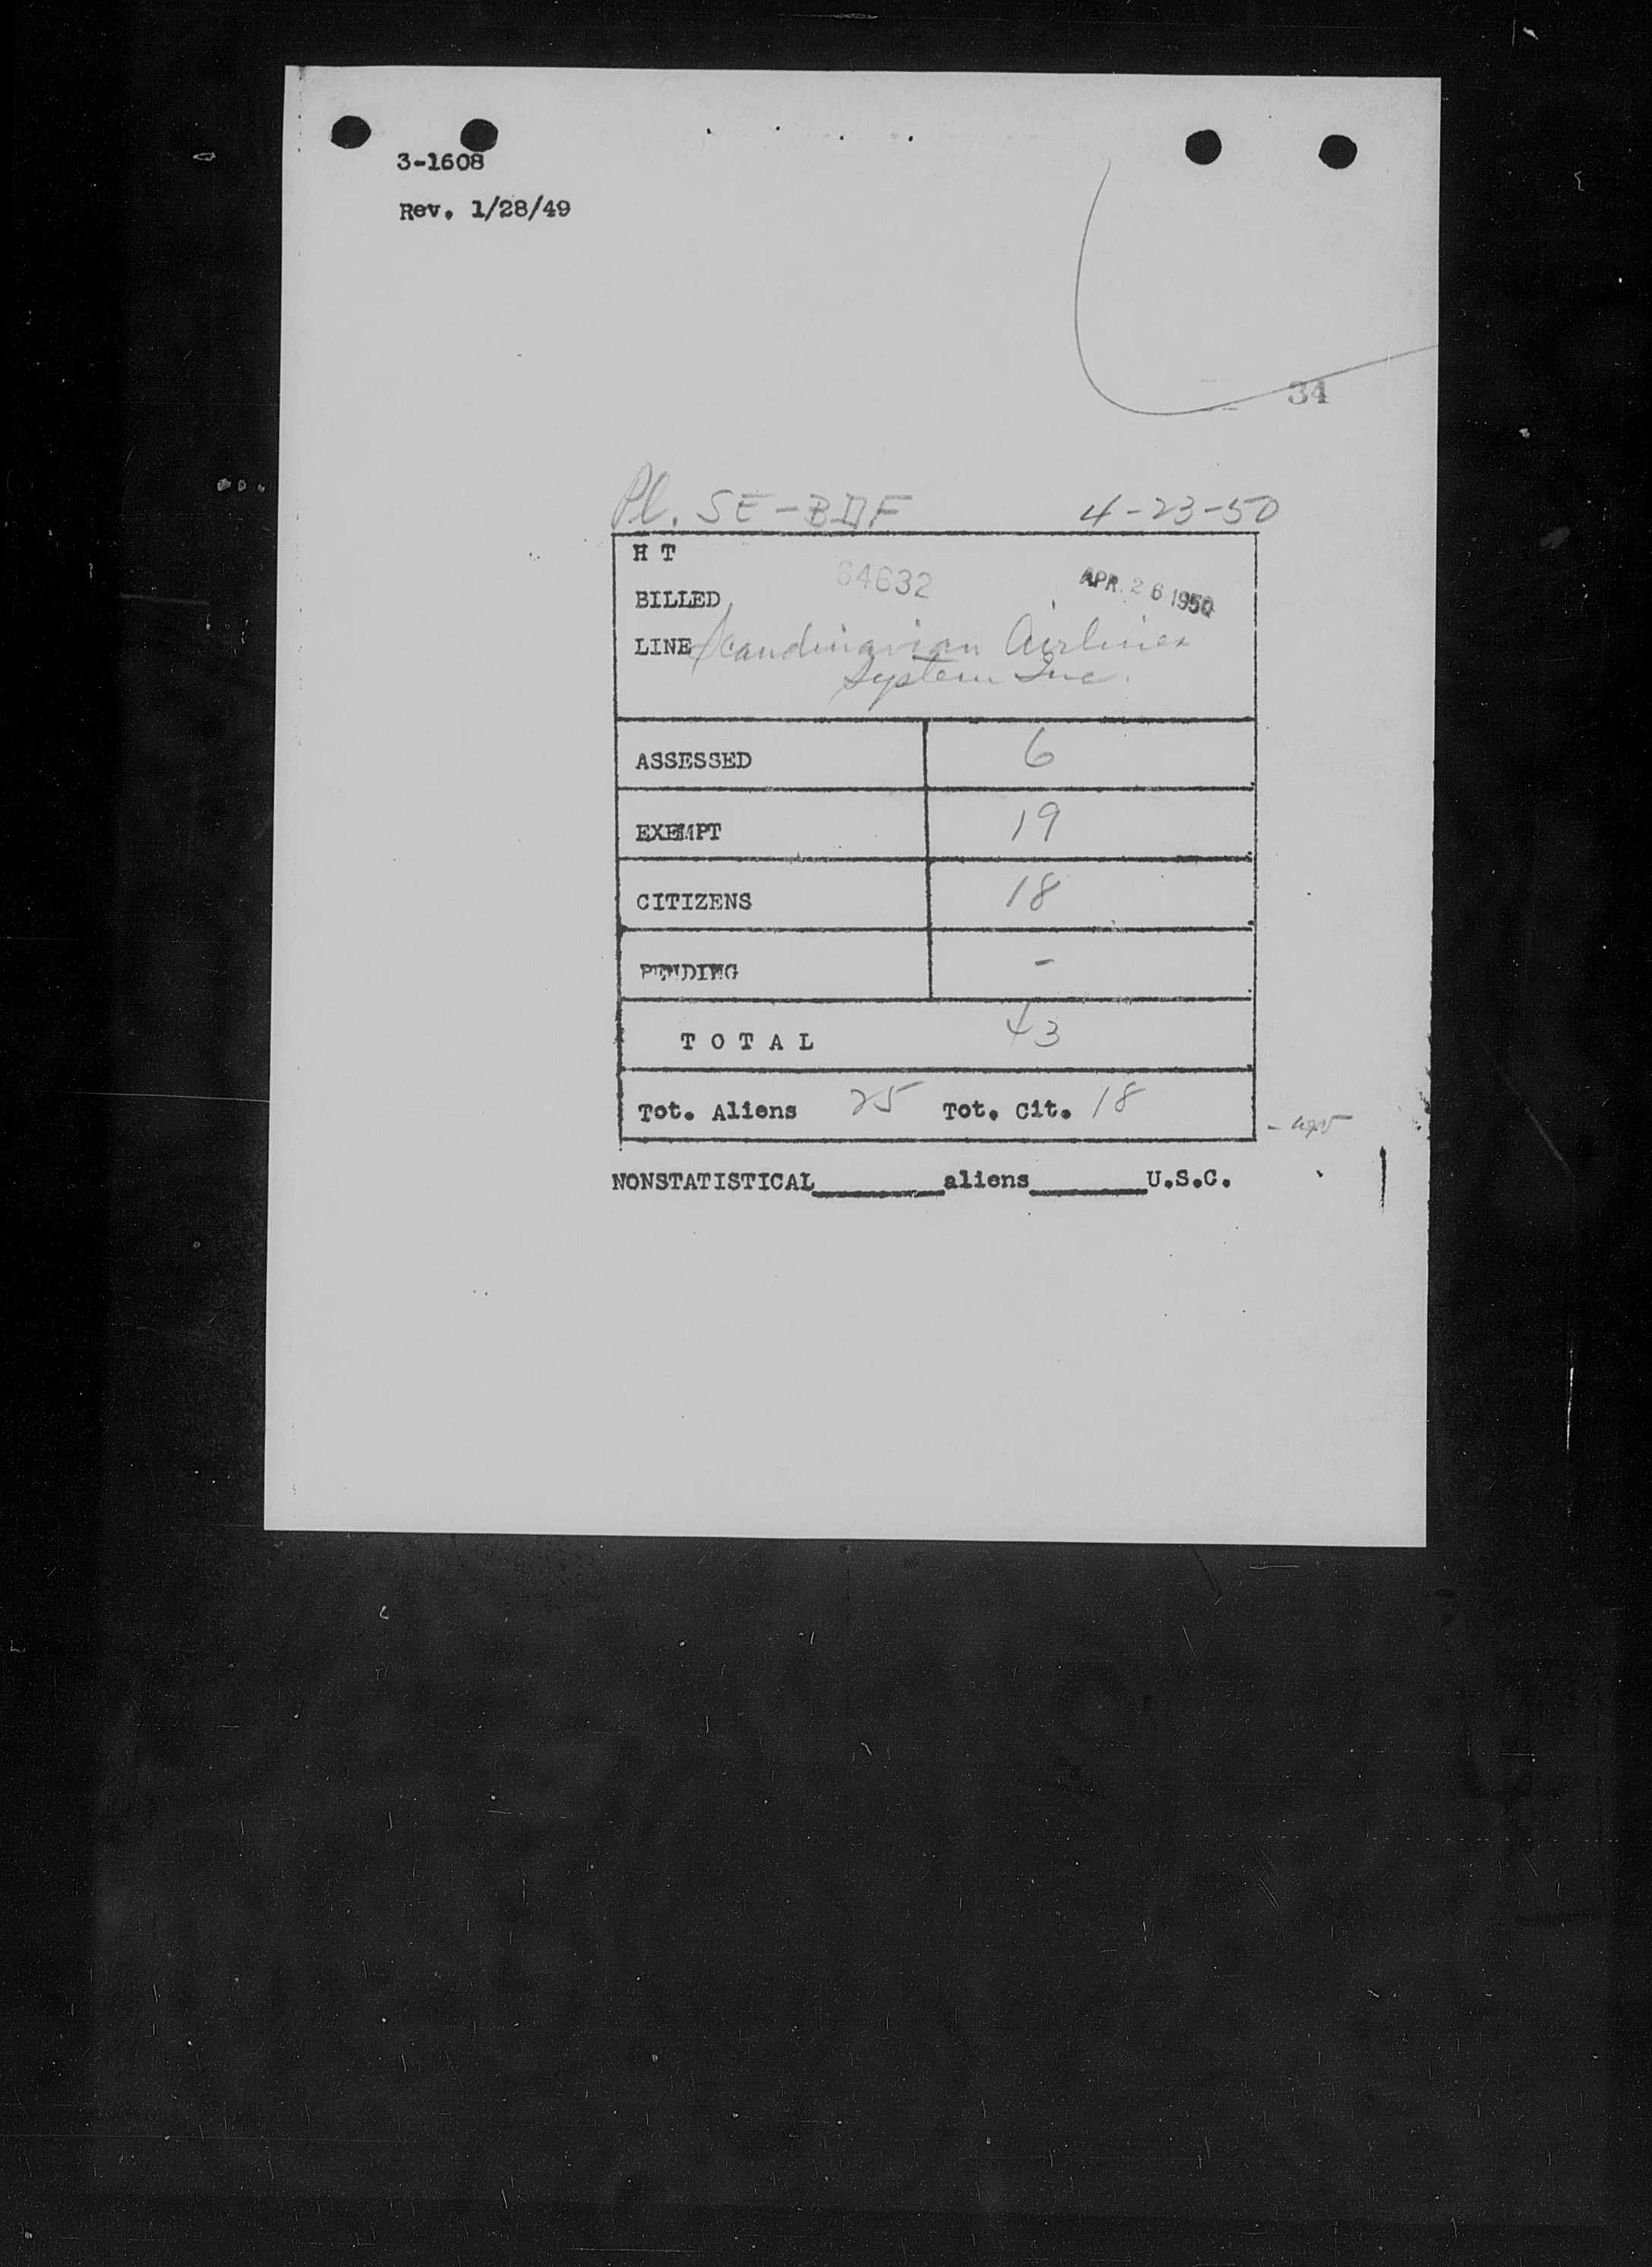 3-1608
Rev. 1/28/49
34
Pl. SE-BDF 4-23-50
H T
64632 APR. 26 1950
BILLED
LINE Scandinavian Airlines
System Inc.
ASSESSED 6
EXEMPT 19
CITIZENS 18
PENDING -
TOTAL 43
Tot. Aliens 25 Tot. Cit. 18
NONSTATISTICAL________aliens________U.S.C.